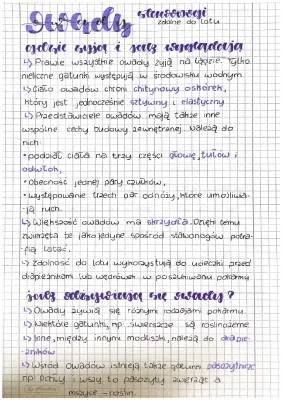 Owady
stawonogi
zdolne do lotu
gdzie żyją i jak wyglądają
↳ Prawie wszystkie owady żyją na lądzie. Tylko
nieliczne gatunki występują w środowisku wodnym
↳ Ciało owadów chroni chitynowy oskórek,
który jest jednocześnie sztywny i elastyczny
↳ Przedstawiciele owadów mają także inne
wspólne cechy budowy zewnętrznej. Należą do
nich:
• podział ciała na trzy części głowę, tułów i
odwłok,
• Obecność jednej pary czułków,
• występowanie trzech par odnóży, które umożliwia-
-ją ruch.
↳ Większość owadów ma skrzydła. Dzięki temu
zwierzęta te jako jedyne spośród stawonogów potra-
-fią latać.
↳ Zdolność do lotu wykorzystują do ucieczki przed
drapieżnikami lub wędrówek w poszukiwaniu pokarmu
jak odżywiają się owady?
↳ Owady żywią się różnymi rodzajami pokarmu.
↳ Niektóre gatunki, np. świerszcze są roślinożerne.
↳ Inne, między innymi modliszki, należą do drapie-
żników
↳ Wśród owadów istnieją także gatunki pasożytnicze
np. pchły i wszy to pasożyty zwierząt a
mszyce - roślin.